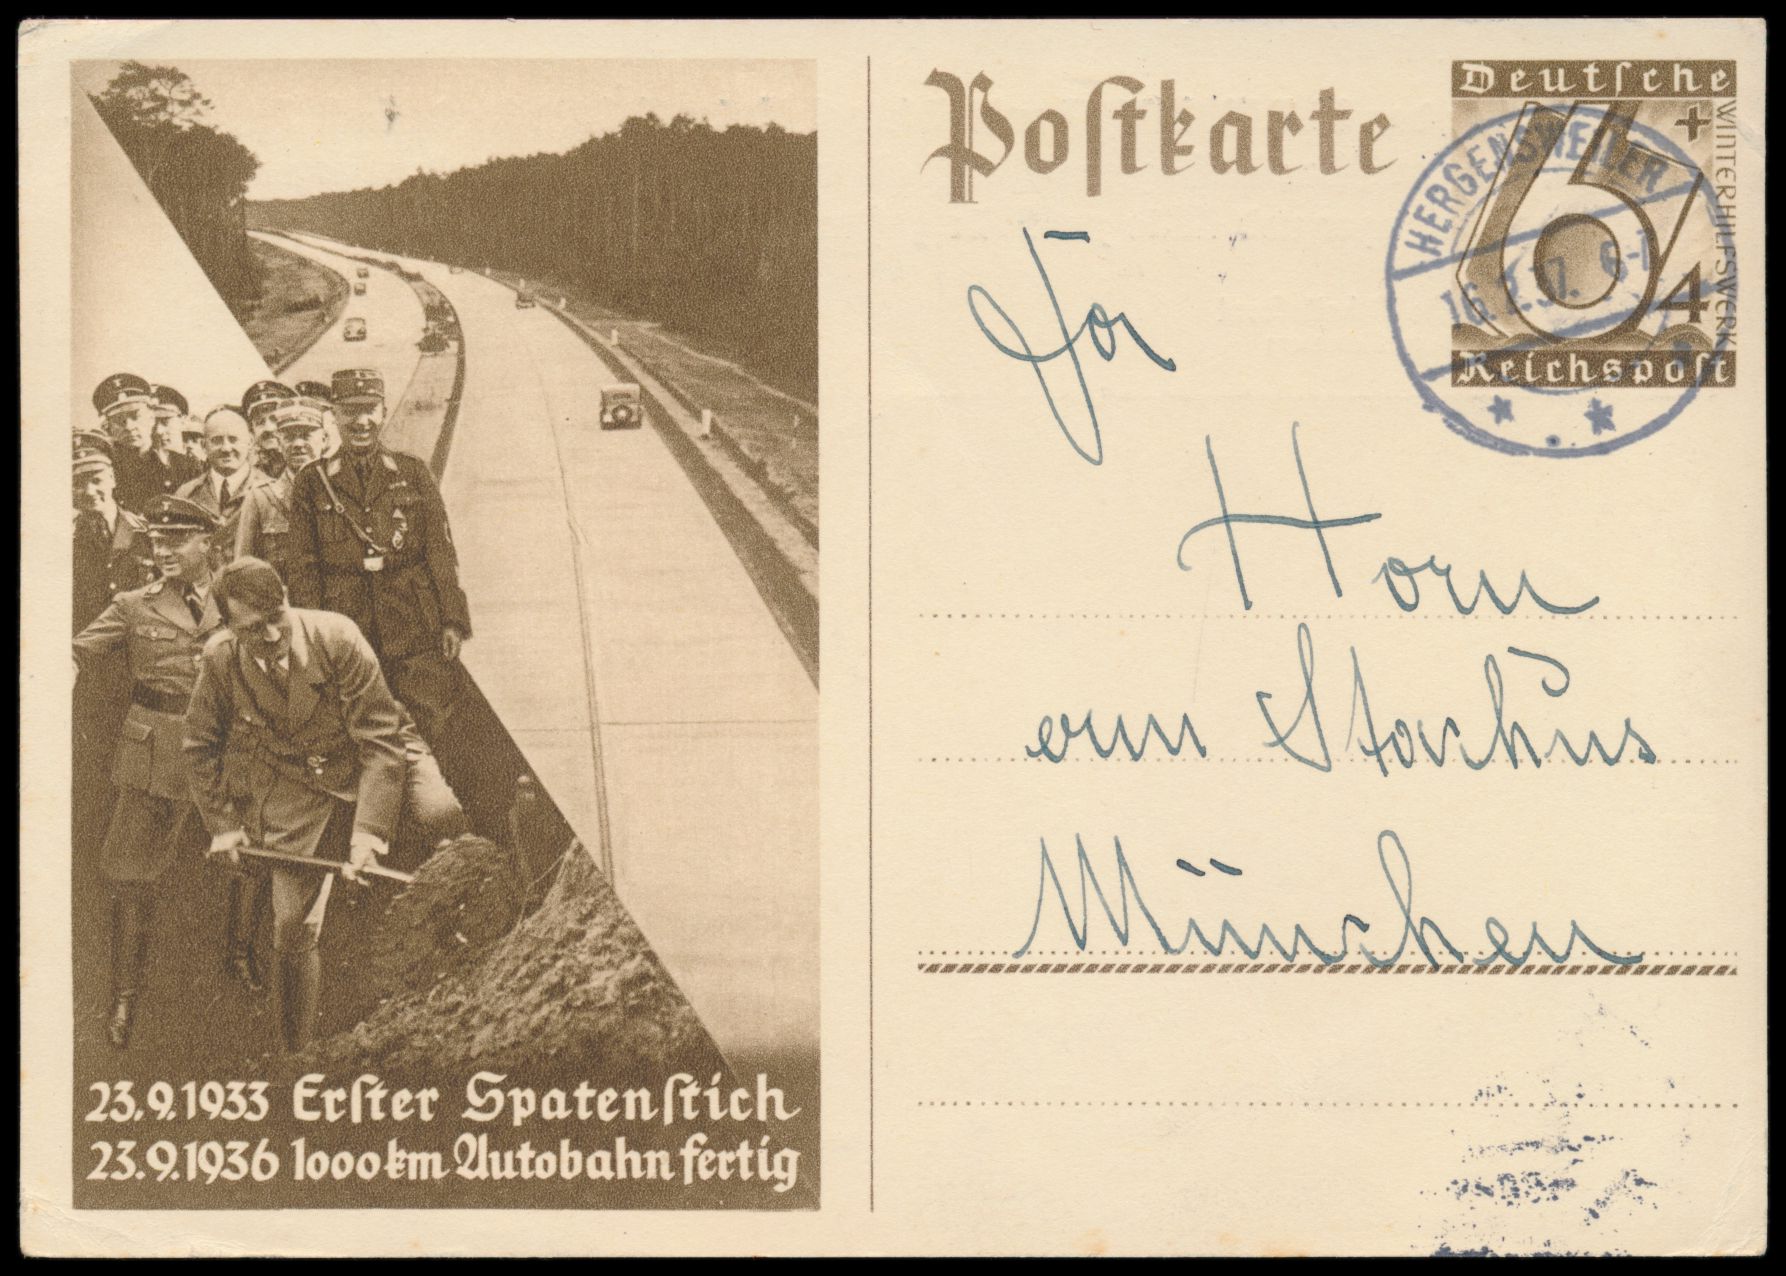 23.9.1933 Erster Spatenstich
23.9.1936 1000km Autobahn fertig
Postkarte
Deutsche
6+4
WINTERHILFSWERK
Reichspost
HERGENSWEILER
Fa
Horn
am Stachus
München